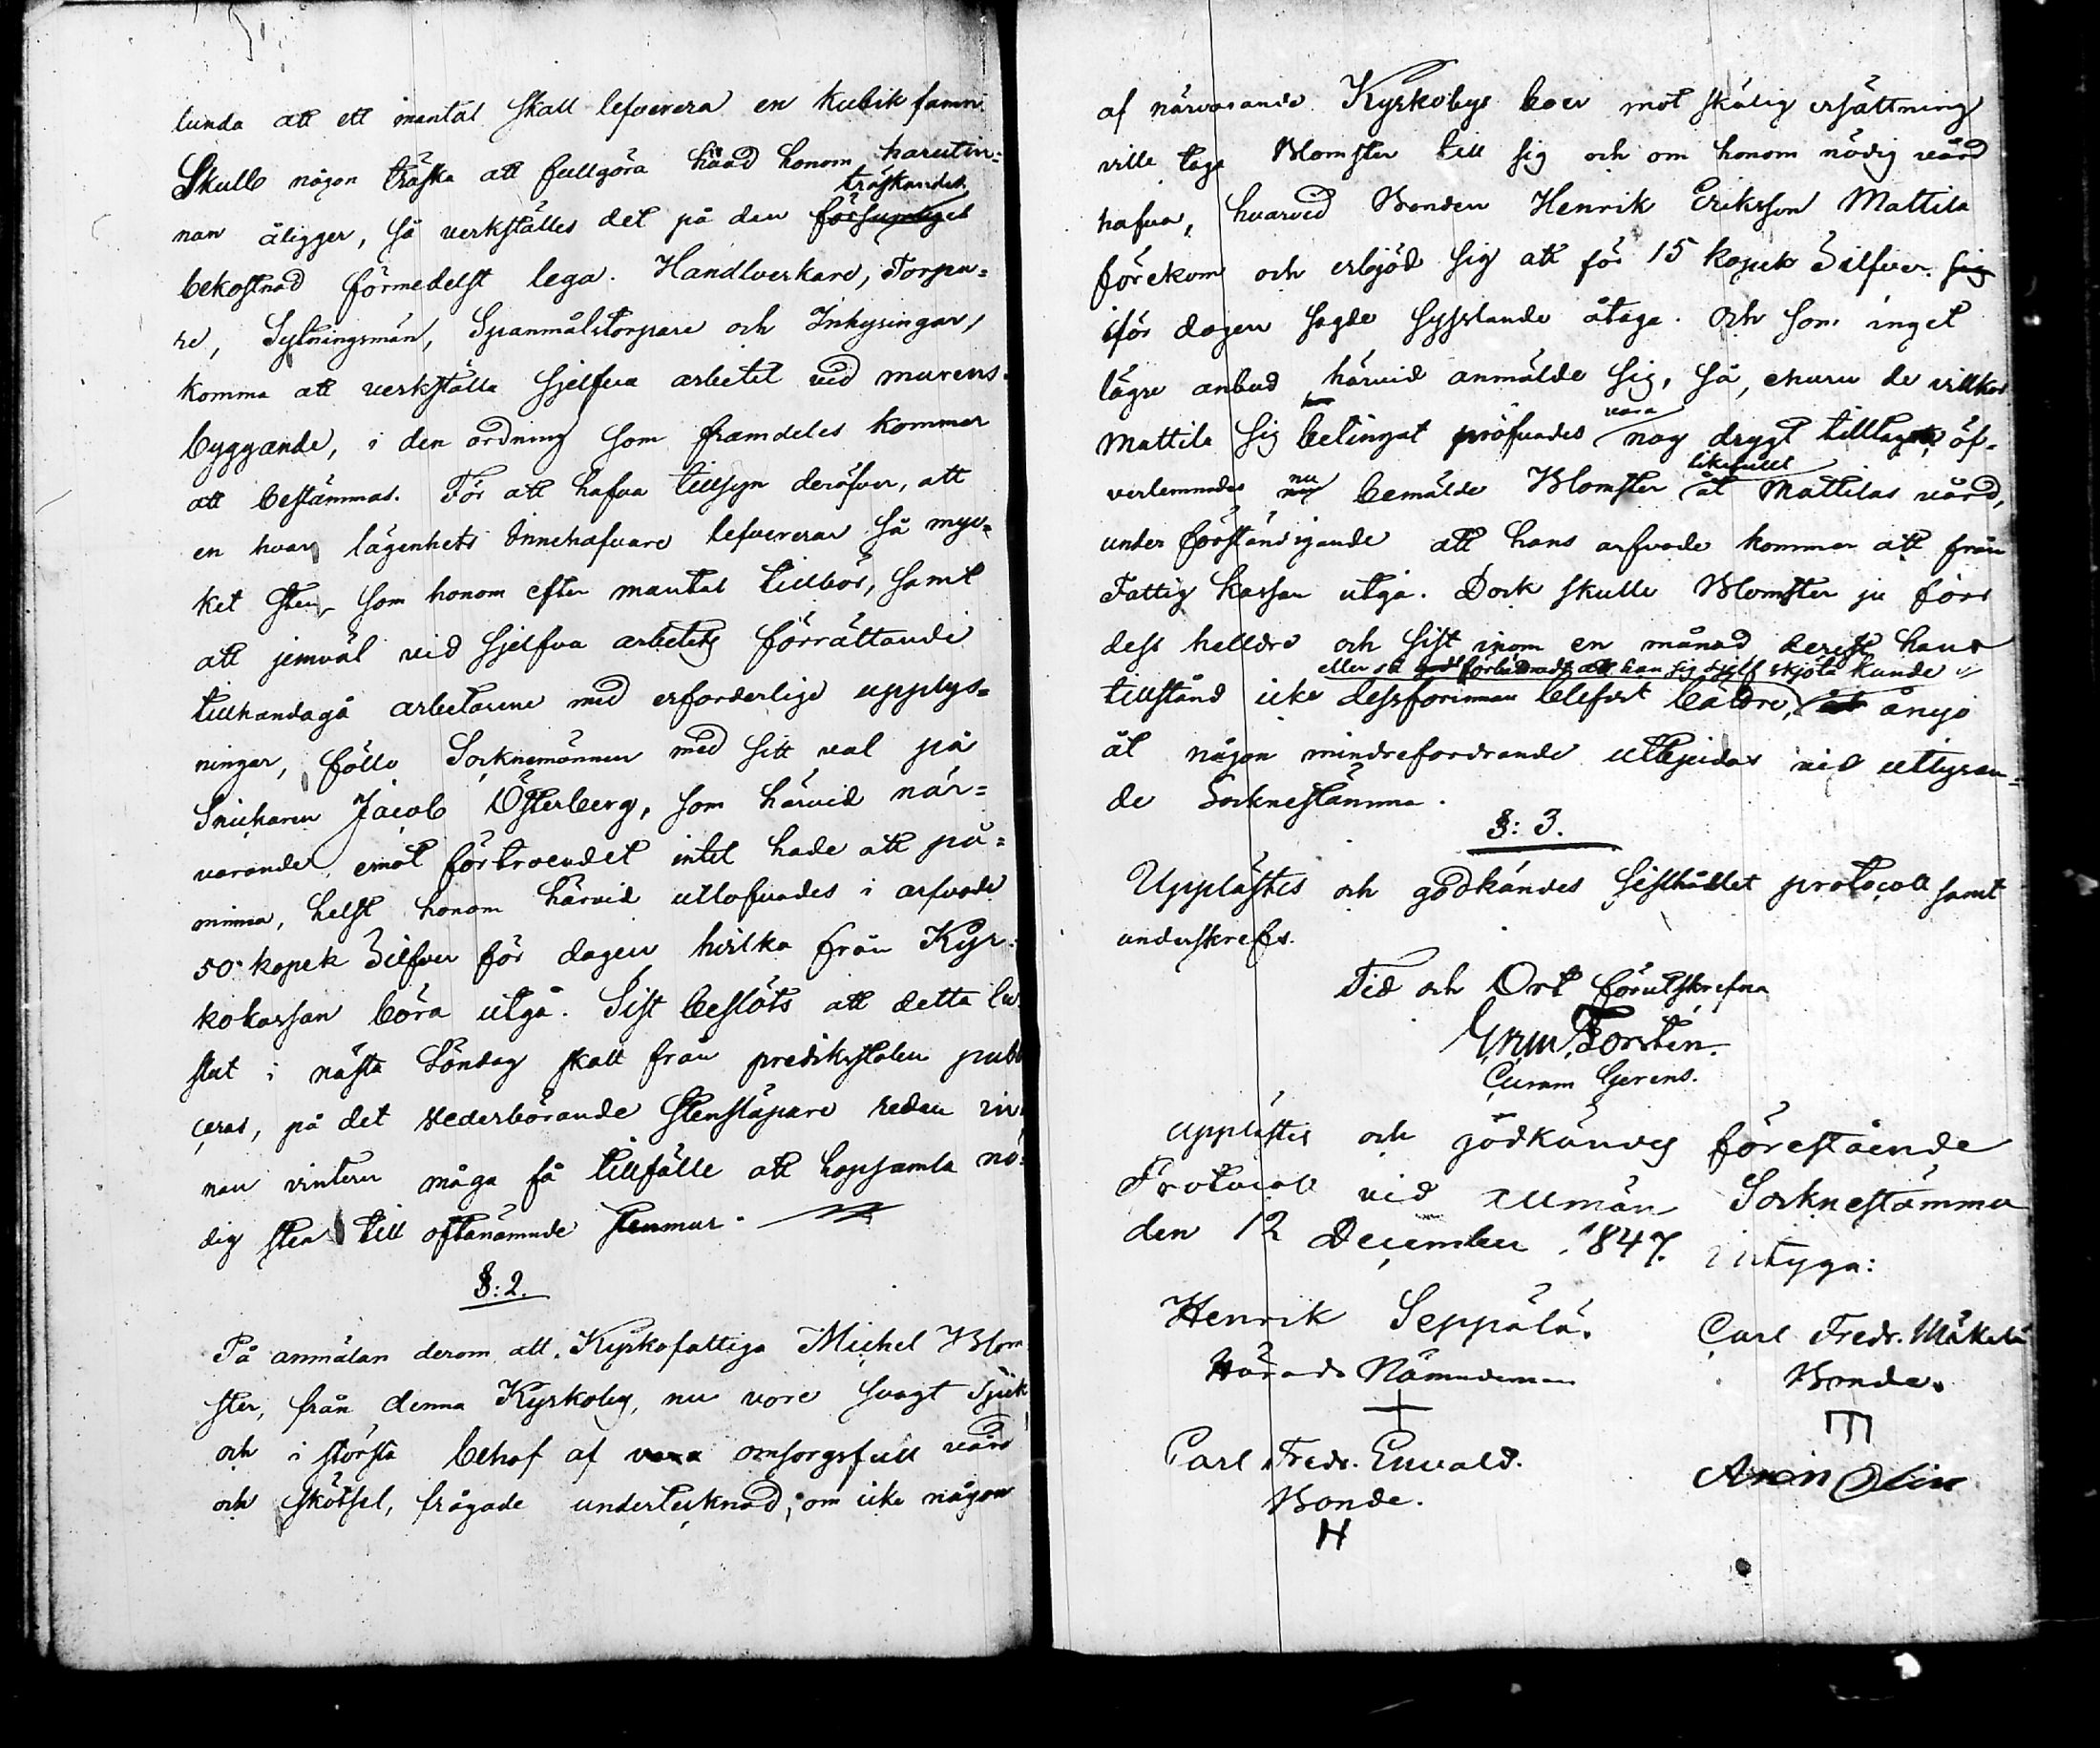 lunda att ett mantal skall lefverera en kubik famn.
Skulle någon tråska att fullgöra hvad honom harutin=
nan åligger, så verkställes det på den försumliges tråskandes
bekostnad förmedelst lega. Handtverkare, Torpa=
re, Sytningsmän, Spanmålstorpare och Inhysingar,
komma att verkställa sjelfva arbetet vid murens
byggande, i den ordning som framdeles kommer
att bestämmas. För att hafva tillsyn deröfver, att
en hvar lägenhets innehafvare lefvererar så myc=
ket sten som honom efter mantal tillhör, samt
att jemväl vid sjelfva arbetets förrättande
tillhandagå arbetarene med erforderlige upplys=
ningar, föllo Socknemännen med sitt val på
Snickaren Jacob Österberg, som härvid när=
varande, emot förtroendet intet hade att på=
minna, helst honom härvid utlofvades i arfvode
50 kopek Silfver för dagen hvilka från Kyr=
kokassan böra utgå. Sist beslöts att detta be
slut i nästa Söndag skall från predikstolen publi
ceras, på det vederbörande stensläpare redan in
nan vintern måga få tillfälle att hopsamla nö=
dig sten till oftanämnde stenmur.
§: 2.
På anmälan derom att Kyrkofattiga Michel Blom
ster, från denna Kyrkoby, nu vore svagt sjuk
och i största behof af vara omsorgsfull vård
och skötsel, frågade undertecknad, om icke någon
af närvarande Kyrkobys boer mot skälig ersättning
ville taga Blomster till sig och om honom nödig vård
hafva, hvarvid Bonden Henrik Eriksson Mattila
förekom och erbjöd sig att för 15 kopek Silfver sig
för dagen sagde sysslande åtaga. Och som inget
lägre anbud härvid anmälde sig, så, ehuru de villkor
Mattila sig betingat pröfvades vara nog drygt tilltagne, öf=
verlemnades nu bemälde Blomster likafullt åt Mattilas vård,
under förständigande att hans arfvode kommer att från
Fattig kassan utgå. Dock skulle Blomster ju förr
dess helldre och sist inom en månad derest hans
tillstånd icke dessforinnan blefve bättre, eller så förbättradt att han sig sjelf skjöta kunde ånyo
åt någon mindrefordrande utbjudas vid utlysan=
de Socknestämma.
§: 3.
Upplästes och godkändes sisthållet protocoll samt
underskrefs.
Tid och Ort förutskrefna
Torsten.
Curam Gerens.
Upplästes och godkändes förestående
Protocoll vid Allmän Socknestämma
den 12 December 1847. intyga:
Henrik Seppälä. Carl Fredr. Mäkelä
Härads Nämndeman Bonde.
Carl Fredr. Envald.
Bonde.